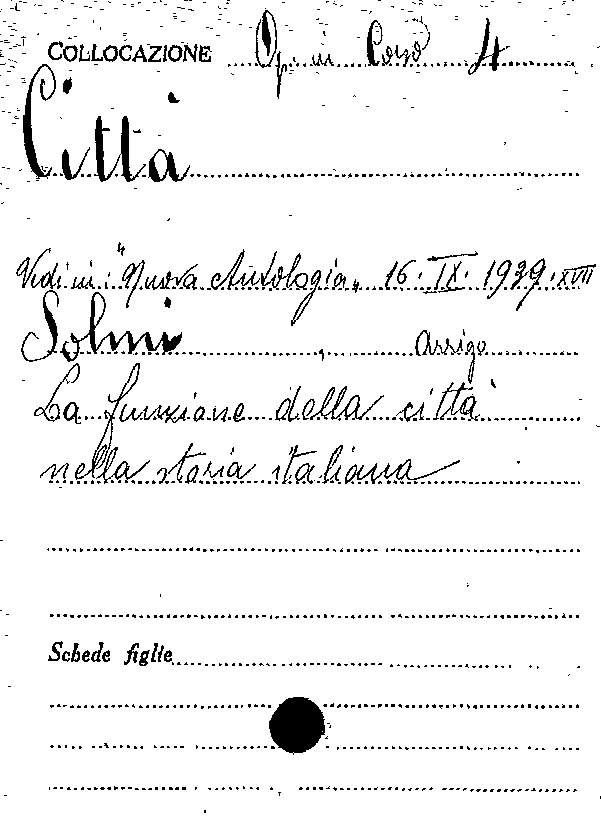 COLLOCAZIONE Op. in Corso 4
Città
Vedi in: "Nuova Antologia„ 16. IX. 1939. XVII
Solmi, Arrigo
La funzione della città
nella storia italiana
Schede figlie